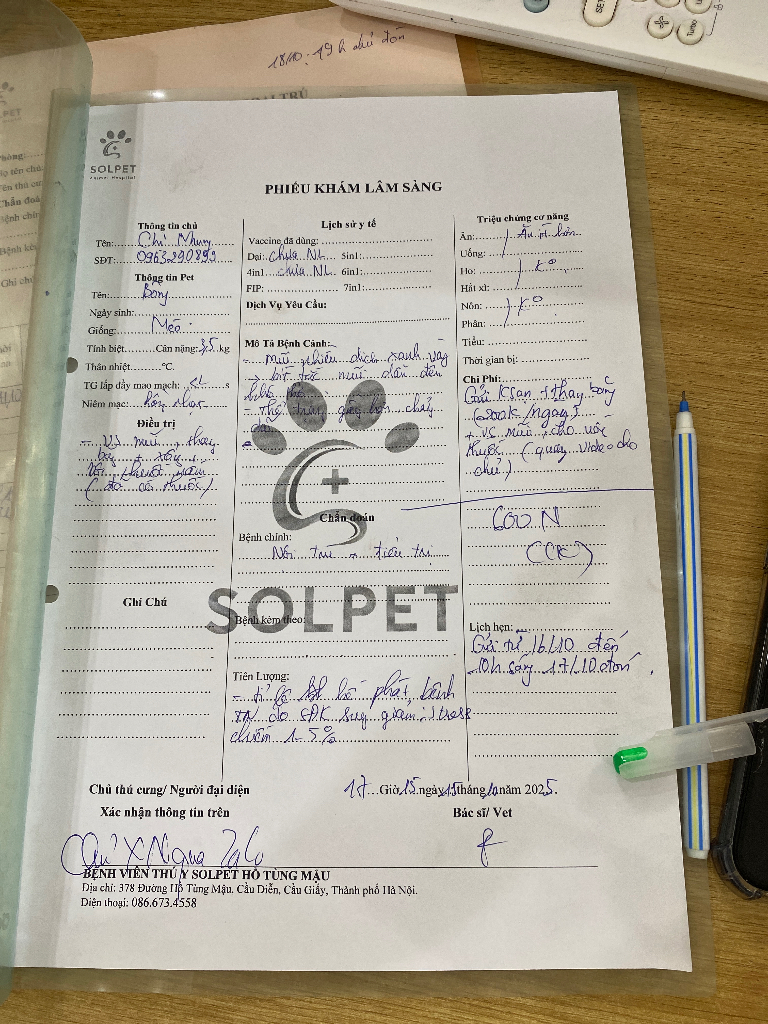 18/10: 19h chủ đón
SOLPET
Animal Hospital
PHIẾU KHÁM LÂM SÀNG
Thông tin chủ
Tên: Chị Nhung
SĐT: 0963290893
Thông tin Pet
Tên: Bông
Ngày sinh:
Giống: Mèo
Tính biệt Cân nặng: 3,5 kg
Thân nhiệt °C.
TG lấp đầy mao mạch: <2 s
Niêm mạc: hồng nhạt
Điều trị
- VS mũi, thay
(đã có thuốc)
Ghi Chú
Lịch sử y tế
Vaccine đã dùng:
Dại: chưa NL 5in1:
4in1 chưa NL 6in1:
FIP: 7in1:
Dịch Vụ Yêu Cầu:
Mô Tả Bệnh Cảnh:
- mũi nhiều dịch xanh vàng
→ bít tắc mũi dẫn đến
- Thể trạng gầy
Chẩn đoán
Bệnh chính:
Nội trú → điều trị
SOLPET
Bệnh kèm theo:
Tiên Lượng:
- tỉ lệ bộc phát bệnh
TN do SĐK suy giảm: stress
chiếm 1-5%
Triệu chứng cơ năng
Ăn: Ăn ít hơn
Uống:
Ho: K°
Hắt xì:
Nôn: K°
Phân:
Tiểu:
Thời gian bị:
Chi Phí:
Gửi KSan + thay bỉm
(200k/ngày)
+ VS mũi, cho uống
thuốc (quay video cho
chủ)
600 N
(CK)
Lịch hẹn:
Gửi từ 16/10 đến
10h sáng 17/10 đón
Chủ thú cưng/ Người đại diện
Xác nhận thông tin trên
17 Giờ 15 ngày 15 tháng 10 năm 2025.
Bác sĩ/ Vet
Chủ XN qua Zalo
BỆNH VIỆN THÚ Y SOLPET HỒ TÙNG MẬU
Địa chỉ: 378 Đường Hồ Tùng Mậu, Cầu Diễn, Cầu Giấy, Thành phố Hà Nội.
Điện thoại: 086.673.4558